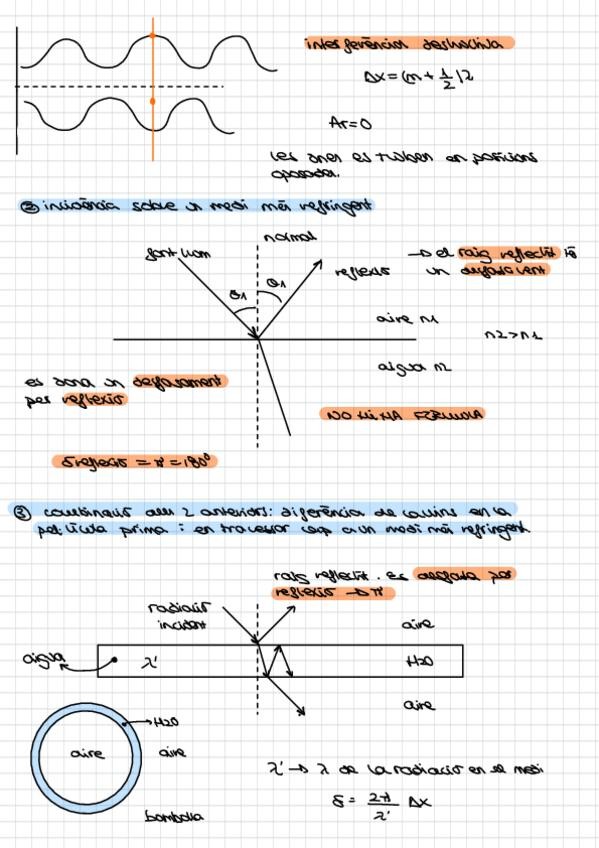 interferència destructiva
Δx = (m + 1/2) λ
Ar = 0
Les ones es troben en posicions
oposades.
② incidència sobre un medi més refringent
normal
font llum
reflexió
→ el raig reflectit té
un desfasament
θ1 θ1
aire n1
n2 > n1
aigua n2
es dona un desfasament
per reflexió
NO HI HA FÓRMULA
δ reflexió = π = 180º
③ combinació dels 2 anteriors: diferència de camins en la
pel·lícula prima i en travessar cap a un medi més refringent
raig reflectit. Es desfasa per
reflexió → π
radiació
incident
aire
aigua
λ'
H2O
aire
H2O
aire
aire
λ' → λ de la radiació en el medi
δ = 2π/λ' Δx
bombolla